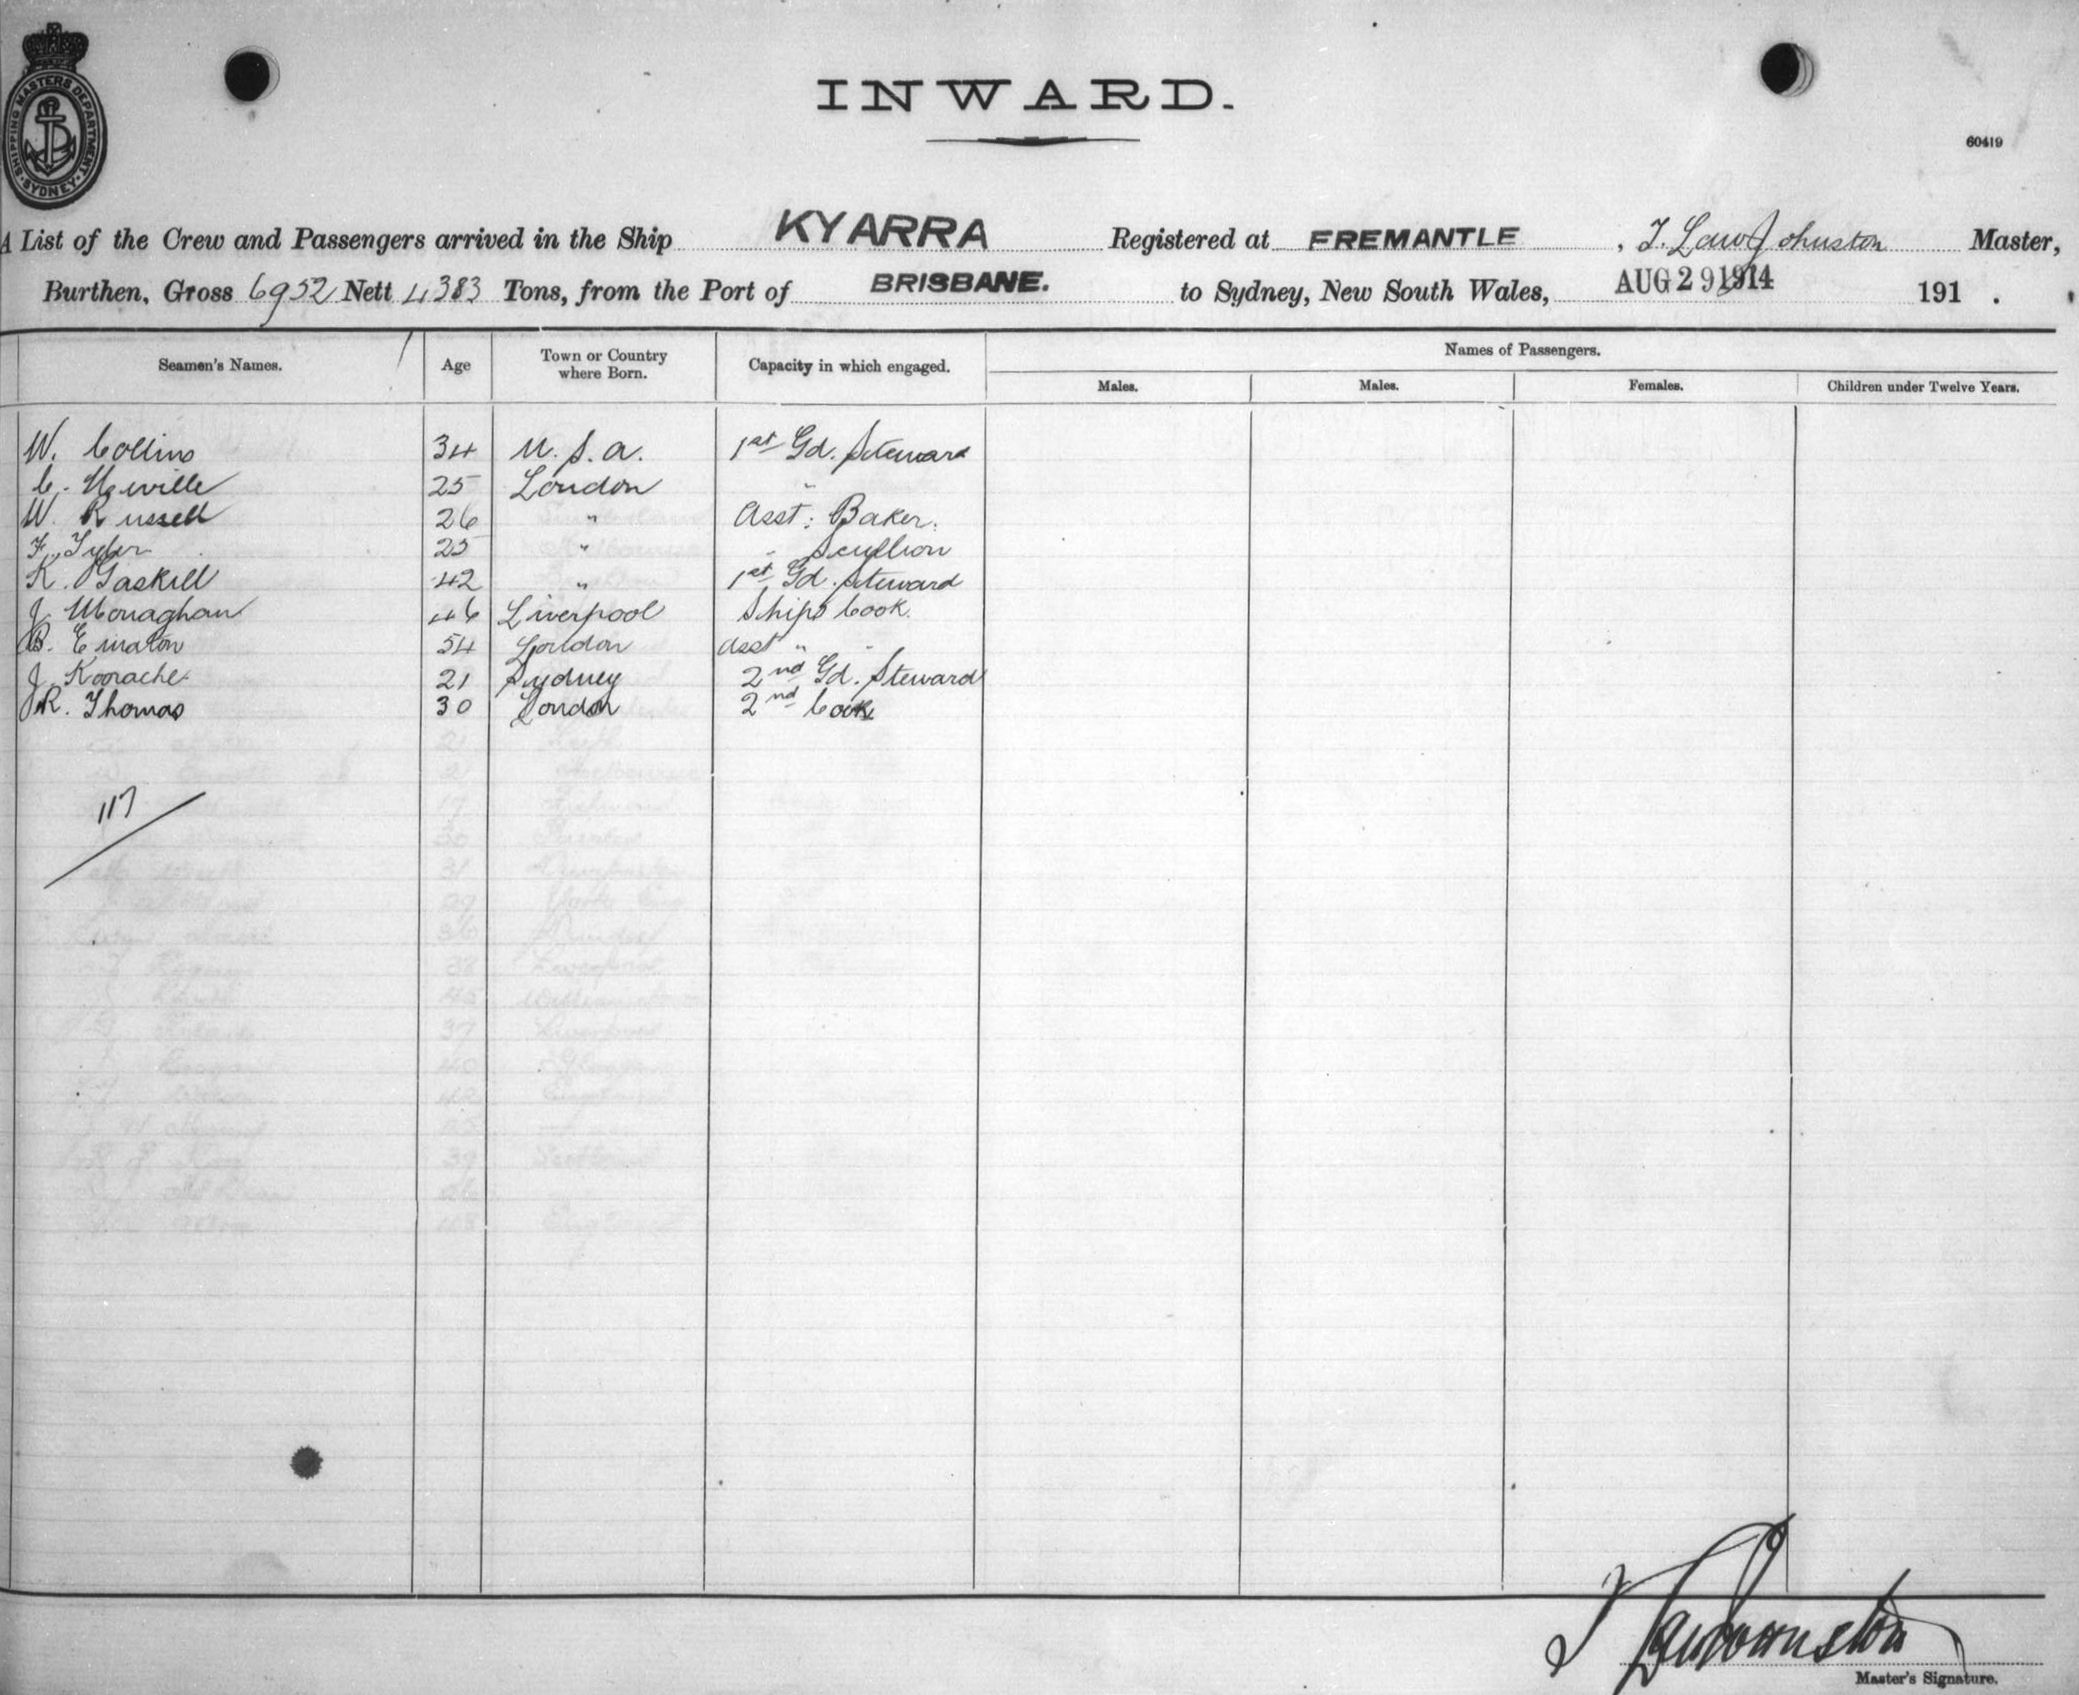 SHIPPING MASTERS DEPARTMENT
SYDNEY
INWARD.
60419
A List of the Crew and Passengers arrived in the Ship KYARRA Registered at FREMANTLE, T. Law Johnston Master,
Burthen, Gross 6952 Nett 4383 Tons, from the Port of BRISBANE. to Sydney, New South Wales, AUG 29 1914 191 .
Seamen's Names. Age Town or Country where Born. Capacity in which engaged. Names of Passengers.
Males. Males. Females. Children under Twelve Years.
W. Collins 34 U.S.A. 1st Gd. Steward
C. Neville 25 London "
W. Russell 26 " Asst: Baker.
F. Tyler 25 " " Scullion
K. Gaskill 42 " 1st Gd. Steward
J. Monaghan 46 Liverpool Ships Cook.
B. 54 London Asst " "
J. 21 Sydney 2nd Gd. Steward
J.R. Thomas 30 London 2nd Cook
117
T Law Johnston
Master's Signature.